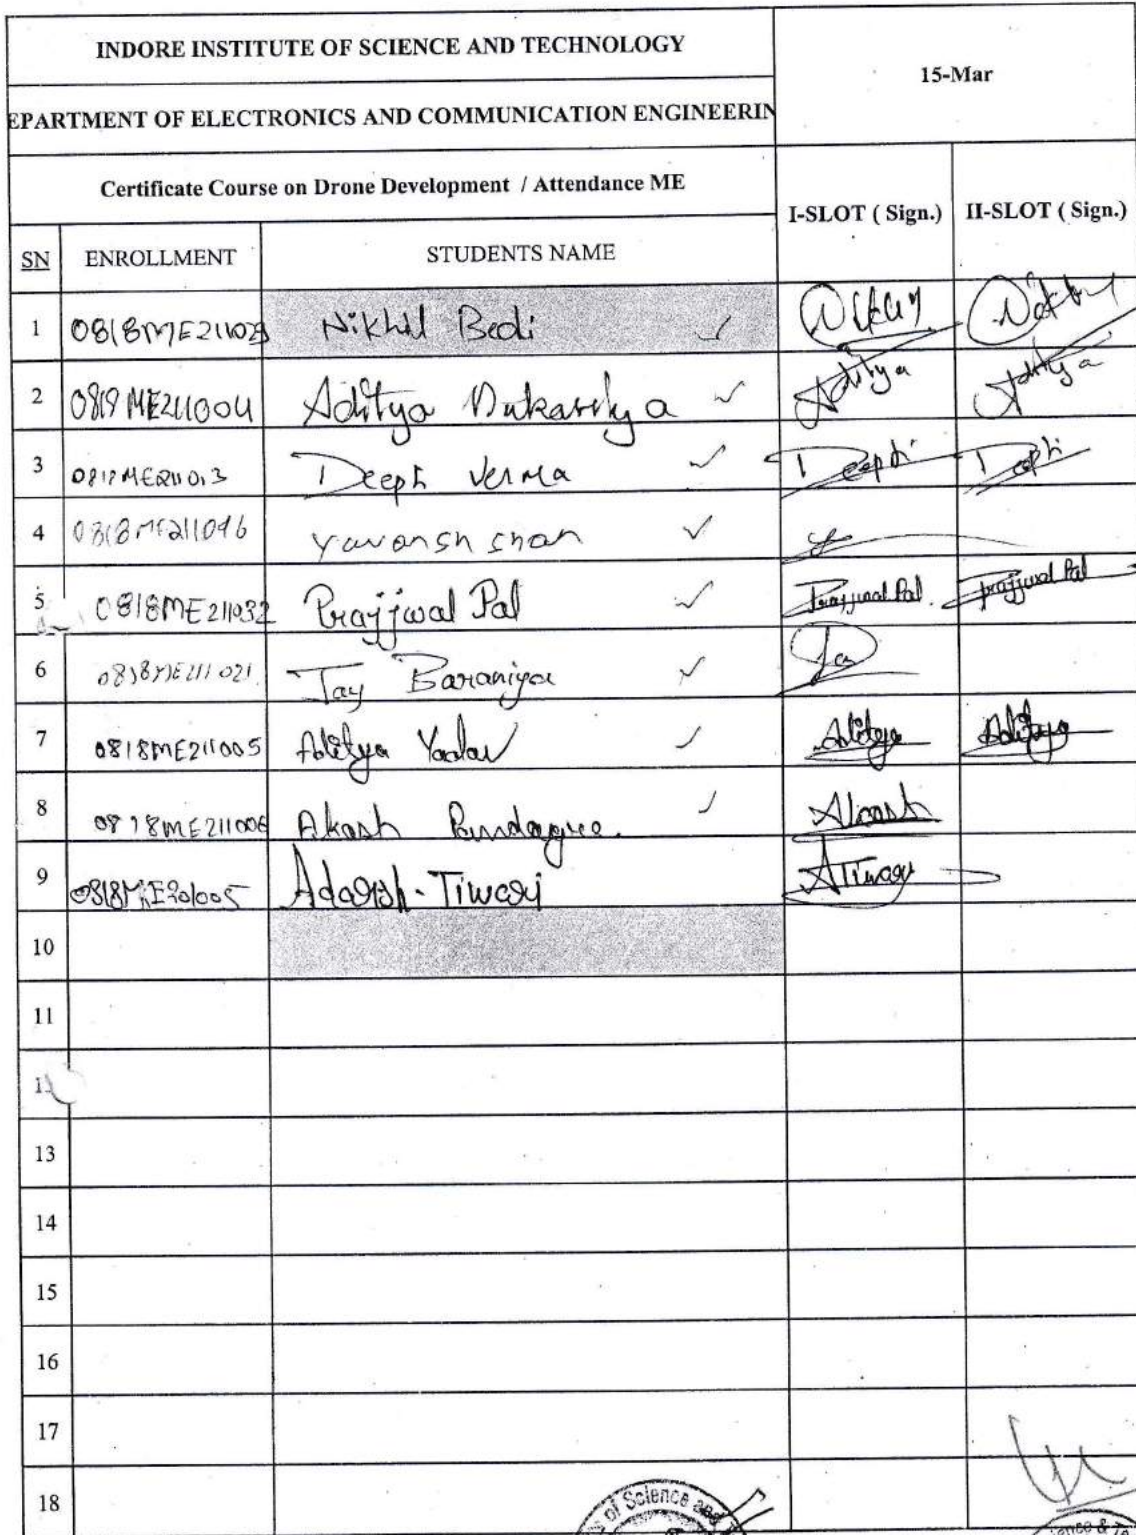 INDORE INSTITUTE OF SCIENCE AND TECHNOLOGY
15-Mar
EPARTMENT OF ELECTRONICS AND COMMUNICATION ENGINEERIN
Certificate Course on Drone Development / Attendance ME
I-SLOT ( Sign.) II-SLOT ( Sign.)
SN ENROLLMENT STUDENTS NAME
1 0818ME211029 Nikhil Bedi ✓
2 0819ME211004 Aditya ✓ Aditya Aditya
3 Deepti Verma ✓ Deepti Deepti
4 0818ME211046 Yuvansh shah ✓
5 0818ME211032 Prajjwal Pal ✓ Prajjwal Pal. Prajjwal Pal
6 0818ME211021. Jay Baraniya ✓ Jay
7 0818ME211005 Aditya Yadav ✓ Aditya Aditya
8 0818ME211006 Akash ✓ Akash
9 0818ME201005 Adarsh-Tiwari ATiwari
10
11
13
14
15
16
17
18
of Science and